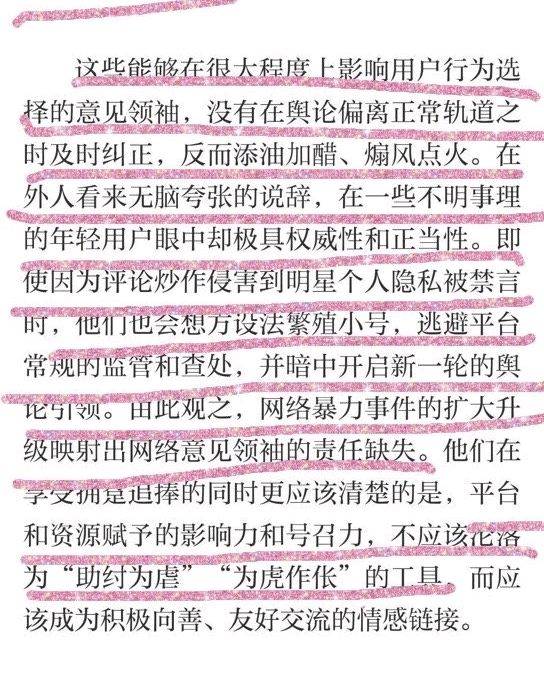 这些能够在很大程度上影响用户行为选
择的意见领袖，没有在舆论偏离正常轨道之
时及时纠正，反而添油加醋、煽风点火。在
外人看来无脑夸张的说辞，在一些不明事理
的年轻用户眼中却极具权威性和正当性。即
使因为评论炒作侵害到明星个人隐私被禁言
时，他们也会想方设法繁殖小号，逃避平台
常规的监管和查处，并暗中开启新一轮的舆
论引领。由此观之，网络暴力事件的扩大升
级映射出网络意见领袖的责任缺失。他们在
享受拥趸追捧的同时更应该清楚的是，平台
和资源赋予的影响力和号召力，不应该沦落
为“助纣为虐”“为虎作伥”的工具，而应
该成为积极向善、友好交流的情感链接。